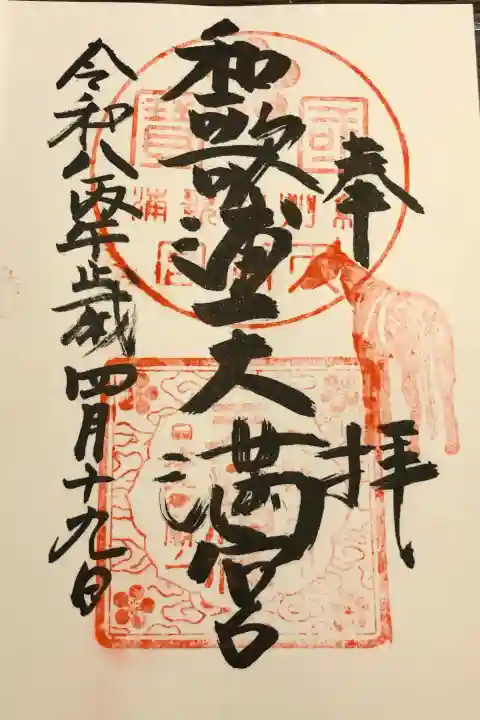 奉拝
和歌浦天満宮
令和八丙午歳四月十九日